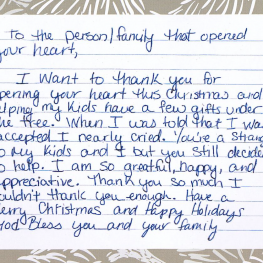 To the person/family that opened
your heart,
I Want to thank you for
pening your heart this Christmas and
elping my kids have a few gifts under
he tree. When I was told that I wa
accepted I nearly cried. You're a Stran
o my kids and I but you still decide
o help. I am so greatful, happy, and
ppreciative. Thank you so much I
ouldn't thank you enough. Have a
erry Christmas and Happy Holidays
God Bless you and your family